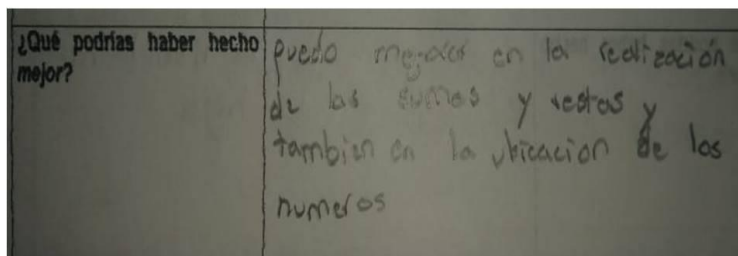 ¿Qué podrías haber hecho
mejor?
puedo mejorar en la realización
de las sumas y restas y
tambien en la ubicacion de los
numeros